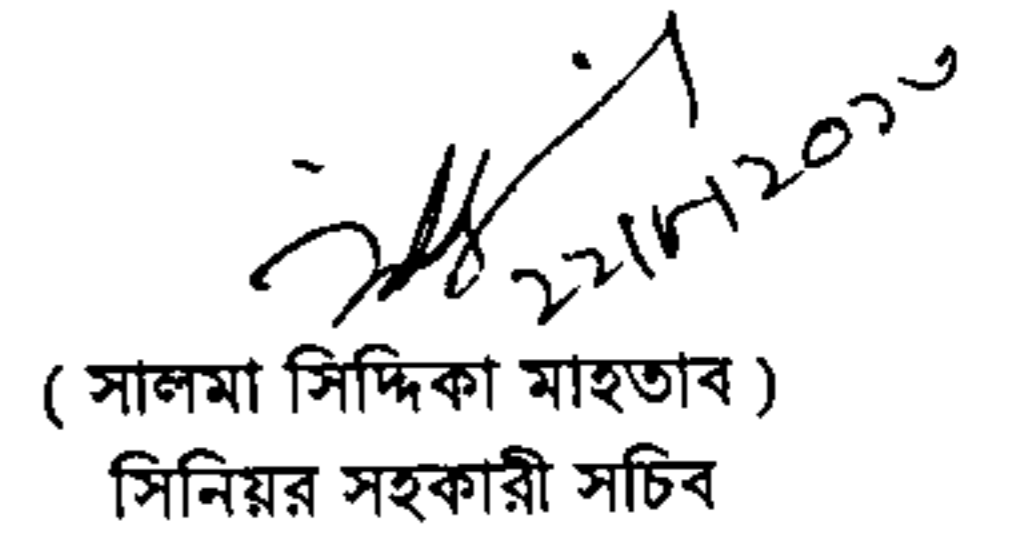 ২২/৮/২০১৩
( সালমা সিদ্দিকা মাহতাব )
সিনিয়র সহকারী সচিব